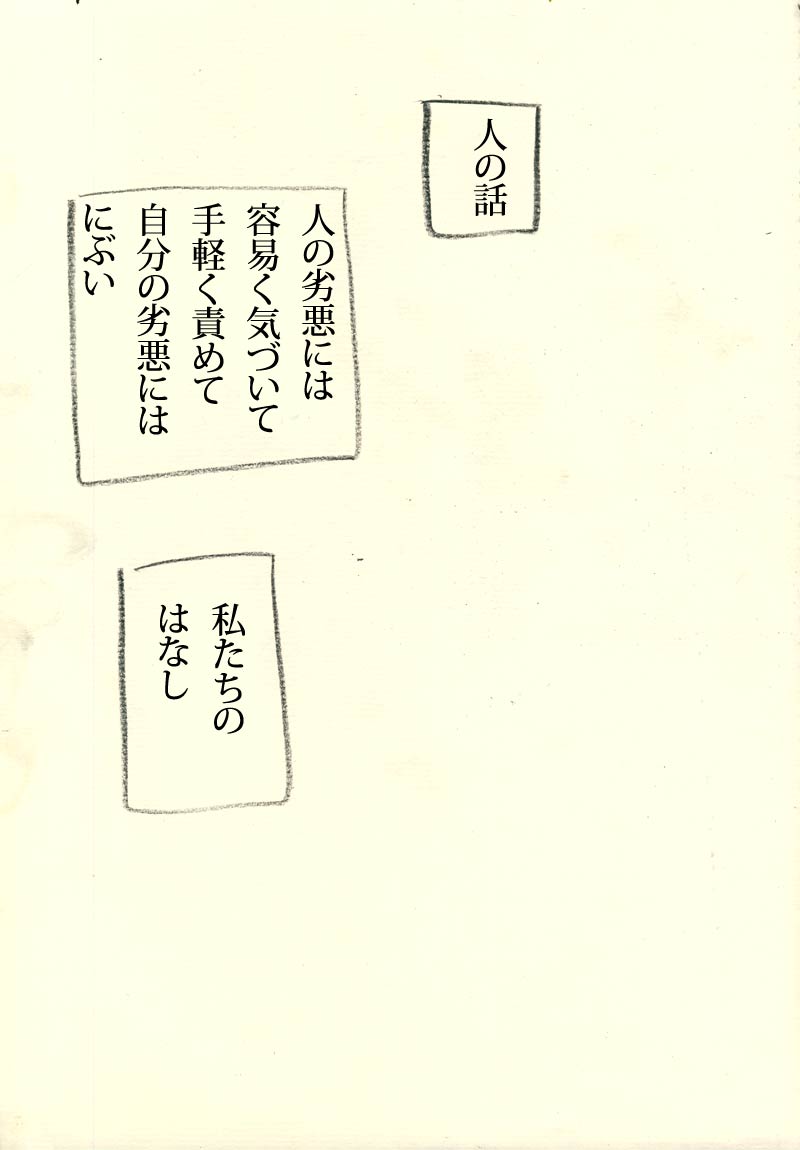 人の話
人の劣悪には
容易く気づいて
手軽く責めて
自分の劣悪には
にぶい
私たちの
はなし